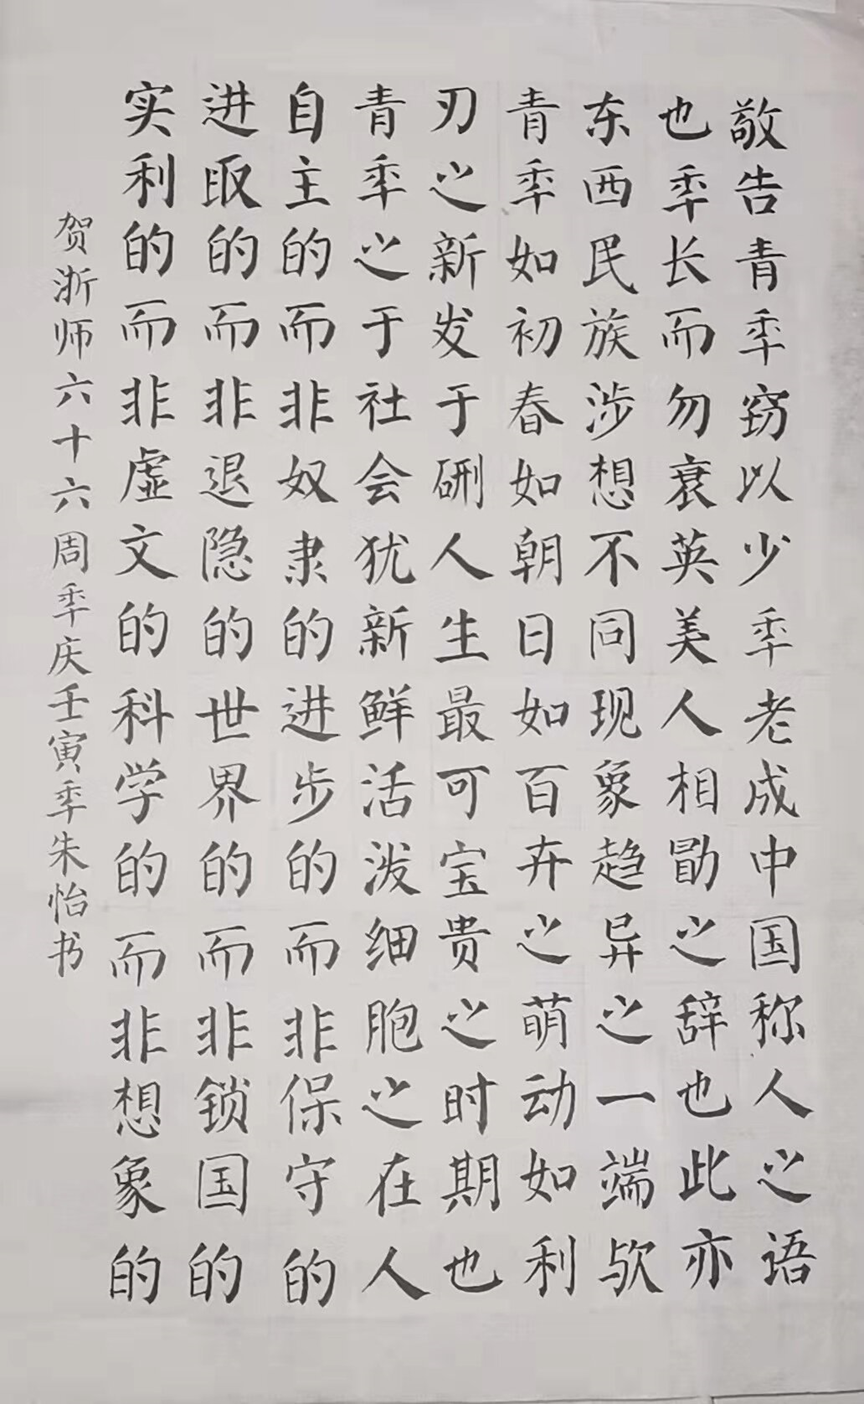 敬告青年窃以少年老成中国称人之语
也年长而勿衰英美人相勖之辞也此亦
东西民族涉想不同现象趋异之一端欤
青年如初春如朝日如百卉之萌动如利
刃之新发于硎人生最可宝贵之时期也
青年之于社会犹新鲜活泼细胞之在人
自主的而非奴隶的进步的而非保守的
进取的而非退隐的世界的而非锁国的
实利的而非虚文的科学的而非想象的
贺浙师六十六周年庆壬寅年朱怡书